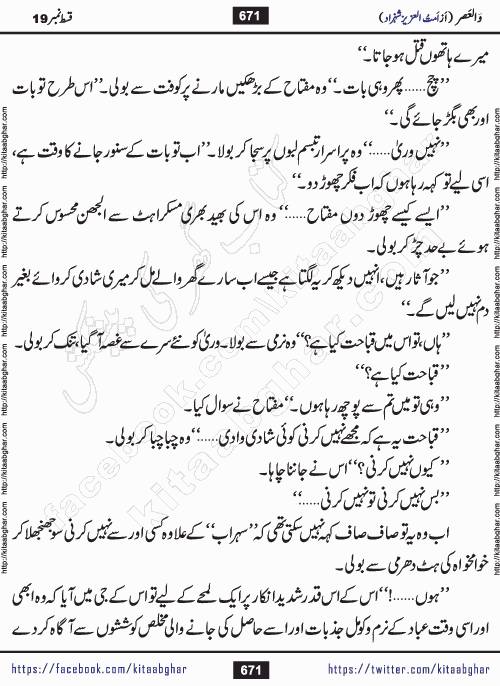 قسط نمبر 19
671
والعصر (از امت العزیز شہزاد)
میرے ہاتھوں قتل ہو جاتا۔‘‘
’’چچ……پھر وہی بات۔‘‘وہ مفتاح کے بڑھکیں مارنے پر کوفت سے بولی۔’’اس طرح تو بات
اور بھی بگڑ جائے گی۔‘‘
’’نہیں وریٰ……‘‘وہ پراسرار تبسم لبوں پر سجا کر بولا۔’’اب تو بات کے سنور جانے کا وقت ہے،
اسی لیے تو کہہ رہا ہوں کہ اب فکر چھوڑ دو۔‘‘
’’ایسے کیسے چھوڑ دوں مفتاح……‘‘ وہ اس کی بھید بھری مسکراہٹ سے الجھن محسوس کرتے
ہوئے بے حد چڑ کر بولی۔
’’جو آثار ہیں، انہیں دیکھ کر یہ لگتا ہے جیسے اب سارے گھر والے مل کر میری شادی کروائے بغیر
دم نہیں لیں گے۔‘‘
’’ہاں، تو اس میں قباحت کیا ہے؟‘‘وہ نرمی سے بولا۔ وریٰ کو نئے سرے سے غصہ آ گیا، تنک کر بولی۔
’’قباحت کیا ہے؟‘‘
’’وہی تو میں تم سے پوچھ رہا ہوں۔‘‘ مفتاح نے سوال کیا۔
’’قباحت یہ ہے کہ مجھے نہیں کرنی کوئی شادی وادی……‘‘وہ چبا چبا کر بولی۔
’’کیوں نہیں کرنی؟‘‘اس نے جاننا چاہا۔
’’بس نہیں کرنی تو نہیں کرنی……‘‘
اب وہ یہ تو صاف صاف کہہ نہیں سکتی تھی کہ ’’سہراب‘‘ کے علاوہ کسی اور سے نہیں کرنی سو جھنجھلا کر
خوامخواہ کی ہٹ دھرمی سے بولی۔
’’ہوں……!‘‘اس کے اس قدر شدید انکار پر ایک لمحے کے لیے تو اس کے جی میں آیا کہ وہ ابھی
اور اسی وقت عباد کے نرم و کومل جذبات اور اسے حاصل کی جانے والی مخلص کوششوں سے آگاہ کر دے
http://kitaabghar.com http://kitaabghar.com http://kitaabghar.com http://kitaabghar.com http://kitaabghar.com http://kitaabghar.com
http://kitaabghar.com http://kitaabghar.com http://kitaabghar.com http://kitaabghar.com http://kitaabghar.com http://kitaabghar.com
کتاب گھر کی پیشکش
facebook.com/kitaabghar
kitaabghar.com
https://facebook.com/kitaabghar
671
https://twitter.com/kitaabghar